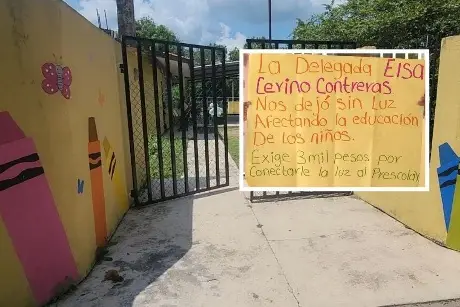 La Delegada Elsa
Cerino Contreras
Nos dejó sin Luz
Afectando la educación
De los niños.
Exige 3 mil pesos por
Conectarle la luz al Prescolar